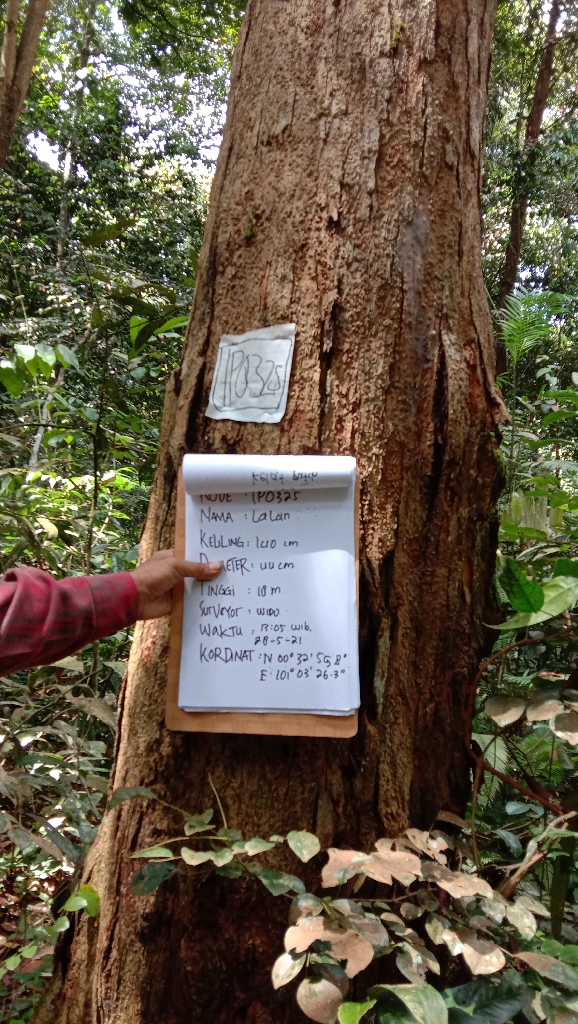 IP0325
KODE : IP0325
NAMA : LaLan
KELILING : 140 cm
DIAMETER : 44 cm
TINGGI : 18 m
SURVEYOR : WIDO
WAKTU : 13:05 WIB.
28-5-21
KORDINAT : N 00° 32' 55,8"
E: 101° 03' 26.3"